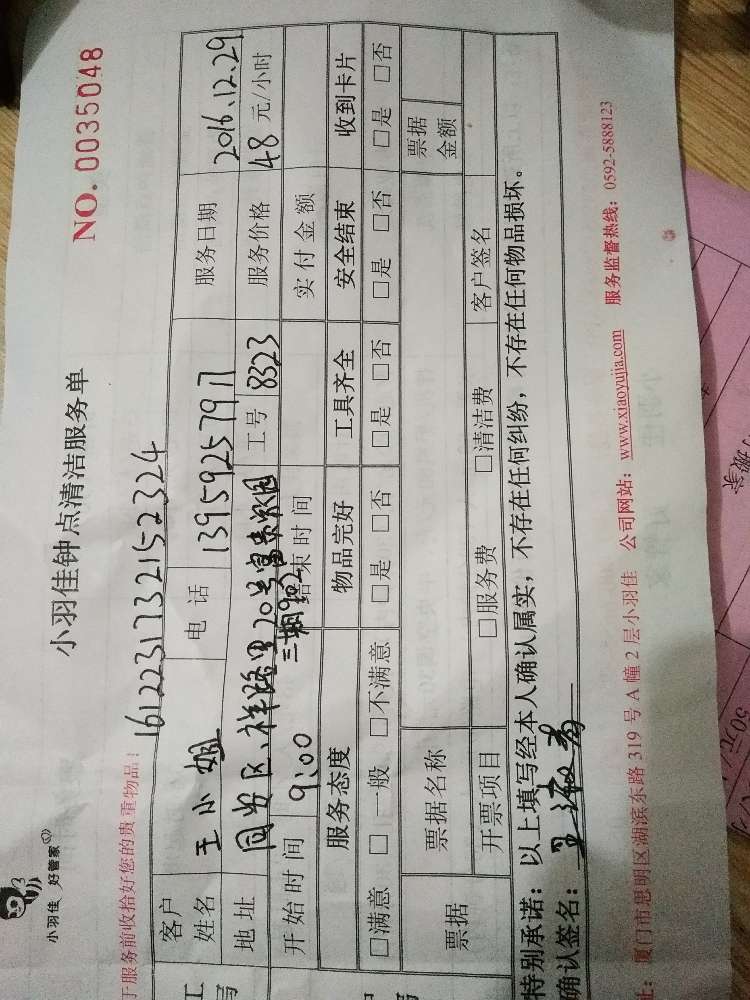 小羽佳 好管家
小羽佳钟点清洁服务单
NO. 0035048
于服务前收拾好您的贵重物品!
1612231732152324
客户姓名 王小姐 电话 13959257971 服务日期 2016.12.29
地址 同安区、祥路里20号富泰状园 三期902 工号 8323 服务价格 48 元/小时
开始时间 9:00 结束时间 实付金额
服务态度 物品完好 工具齐全 安全结束 收到卡片
□满意 □一般 □不满意 □是 □否 □是 □否 □是 □否 □是 □否
票据 票据名称 票据金额
开票项目 □服务费 □清洁费 客户签名
特别承诺: 以上填写经本人确认属实,不存在任何纠纷,不存在任何物品损坏。
确认签名: 王淑
址: 厦门市思明区湖滨东路 319 号 A 幢 2 层小羽佳 公司网站: www.xiaoyujia.com 服务监督热线: 0592-5888123